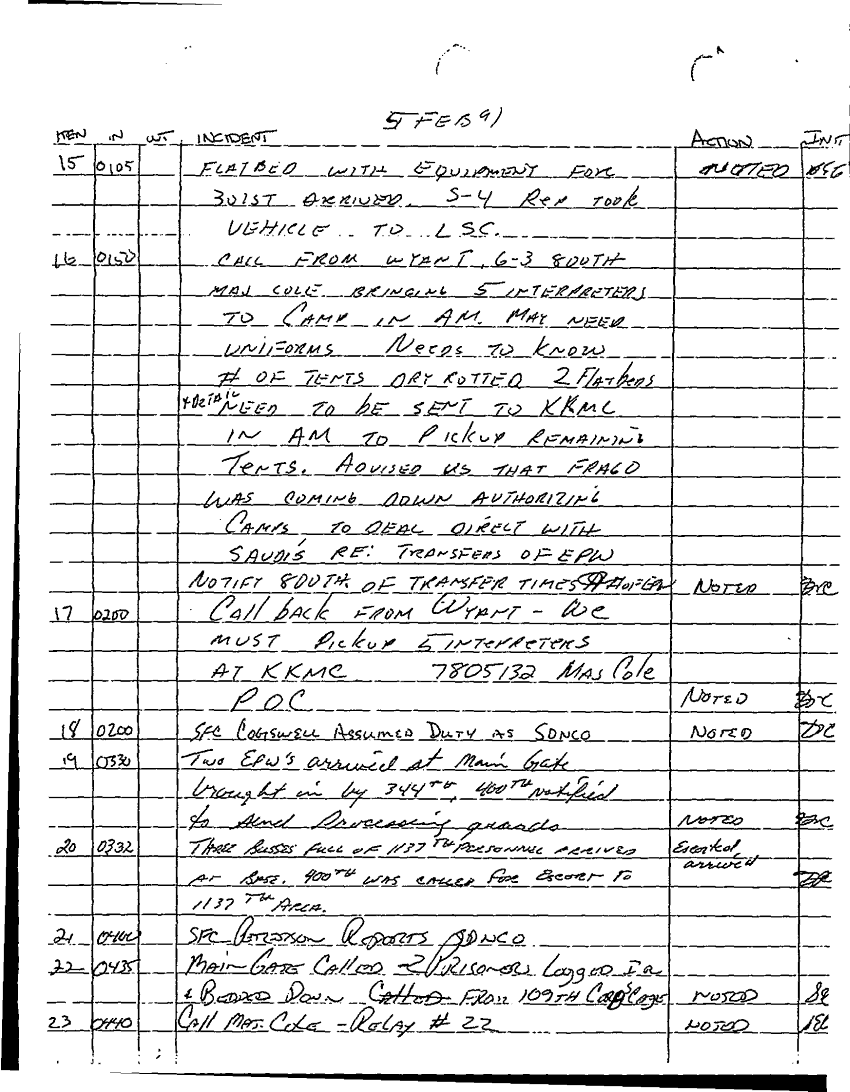 5 FEB 91
ITEM IN OUT INCIDENT ACTION INT
15 0105 FLATBED WITH EQUIPMENT FOR NOTED
301ST ARRIVED. S-4 REP TOOK
VEHICLE TO LSC.
16 0150 CALL FROM WYANT, G-3 800TH
MAJ COLE BRINGING 5 INTERPRETERS
TO CAMP IN AM. MAY NEED
UNIFORMS NEEDS TO KNOW
# OF TENTS DRY ROTTED 2 Flatbeds
+ DETAIL NEED TO BE SENT TO KKMC
IN AM TO PICKUP REMAINING
TENTS. ADVISED US THAT FRAGO
WAS COMING DOWN AUTHORIZING
CAMPS TO DEAL DIRECT WITH
SAUDI'S RE: TRANSFERS OF EPW
NOTIFY 800TH OF TRANSFER TIMES # OF EPW NOTED
17 0200 Call back FROM WYANT - We
MUST Pickup 5 INTERPRETERS
AT KKMC 7805132 MAJ Cole
POC NOTED
18 0200 SFC COGSWELL ASSUMED DUTY AS SDNCO NOTED DC
19 0330 Two EPW's arrived at Main Gate
brought in by 344TH, 400TH notified
to send Processing guards NOTED
20 0332 THREE BUSSES FULL OF 1137TH PERSONNEL ARRIVED Escorted
AT BASE. 400TH WAS CALLED FOR ESCORT TO arrived
1137TH AREA.
21 SFC PETERSON REPORTS SDNCO
22 0435 MAIN GATE CALLED 2 PRISONERS Logged In
& BEDDED DOWN CALLED FROM 109TH Corp Cage NOTED
23 0440 Call MAJ. COLE - RELAY # 22 NOTED